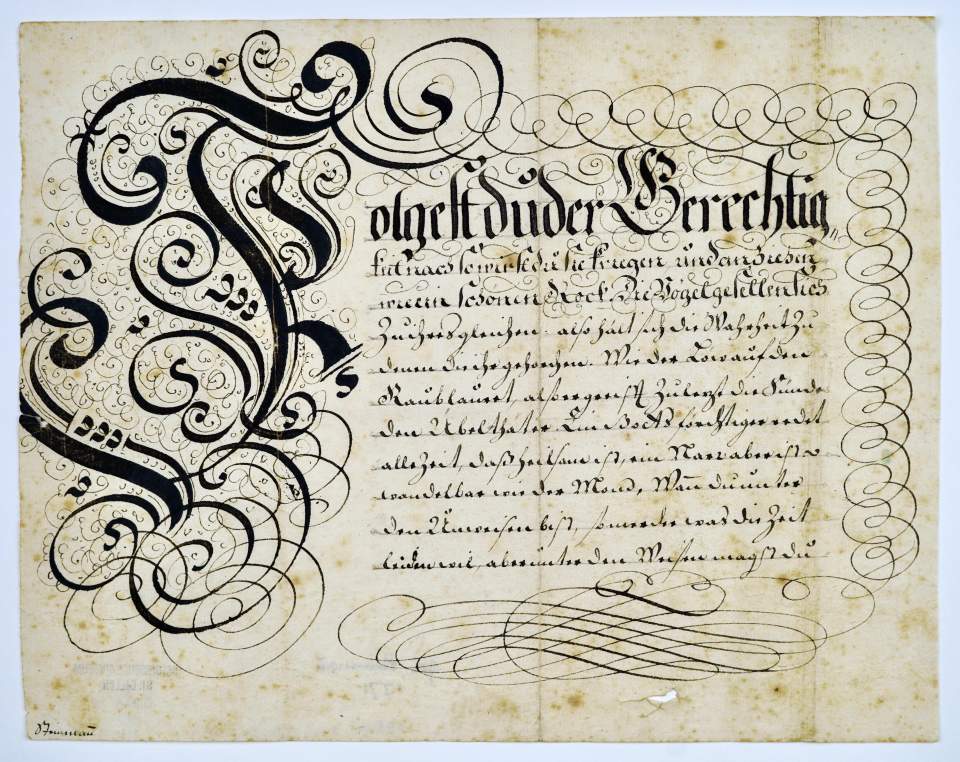 Folgest du der Gerechtig„
keit nach so wirst du sie kriegen und anziehen
wie ein schönen Rock. Die Vögel gesellen sich
Zu ihres gleichen: also hält sich die Wahrheit Zu
denen die ihr gehorchen. Wie der Löw auf den
Raub lauret, also ergreifft Zuletzt die Sünde
den Übelthäter. Ein Gotts förchtiger redet
alle Zeit, daß heilsam ist, ein Narr aber ist
wandelbar wie der Mond, Wañ du unter
den Unweisen bist, so merke was die Zeit
leiden wil, aber unter den Weisen magst du